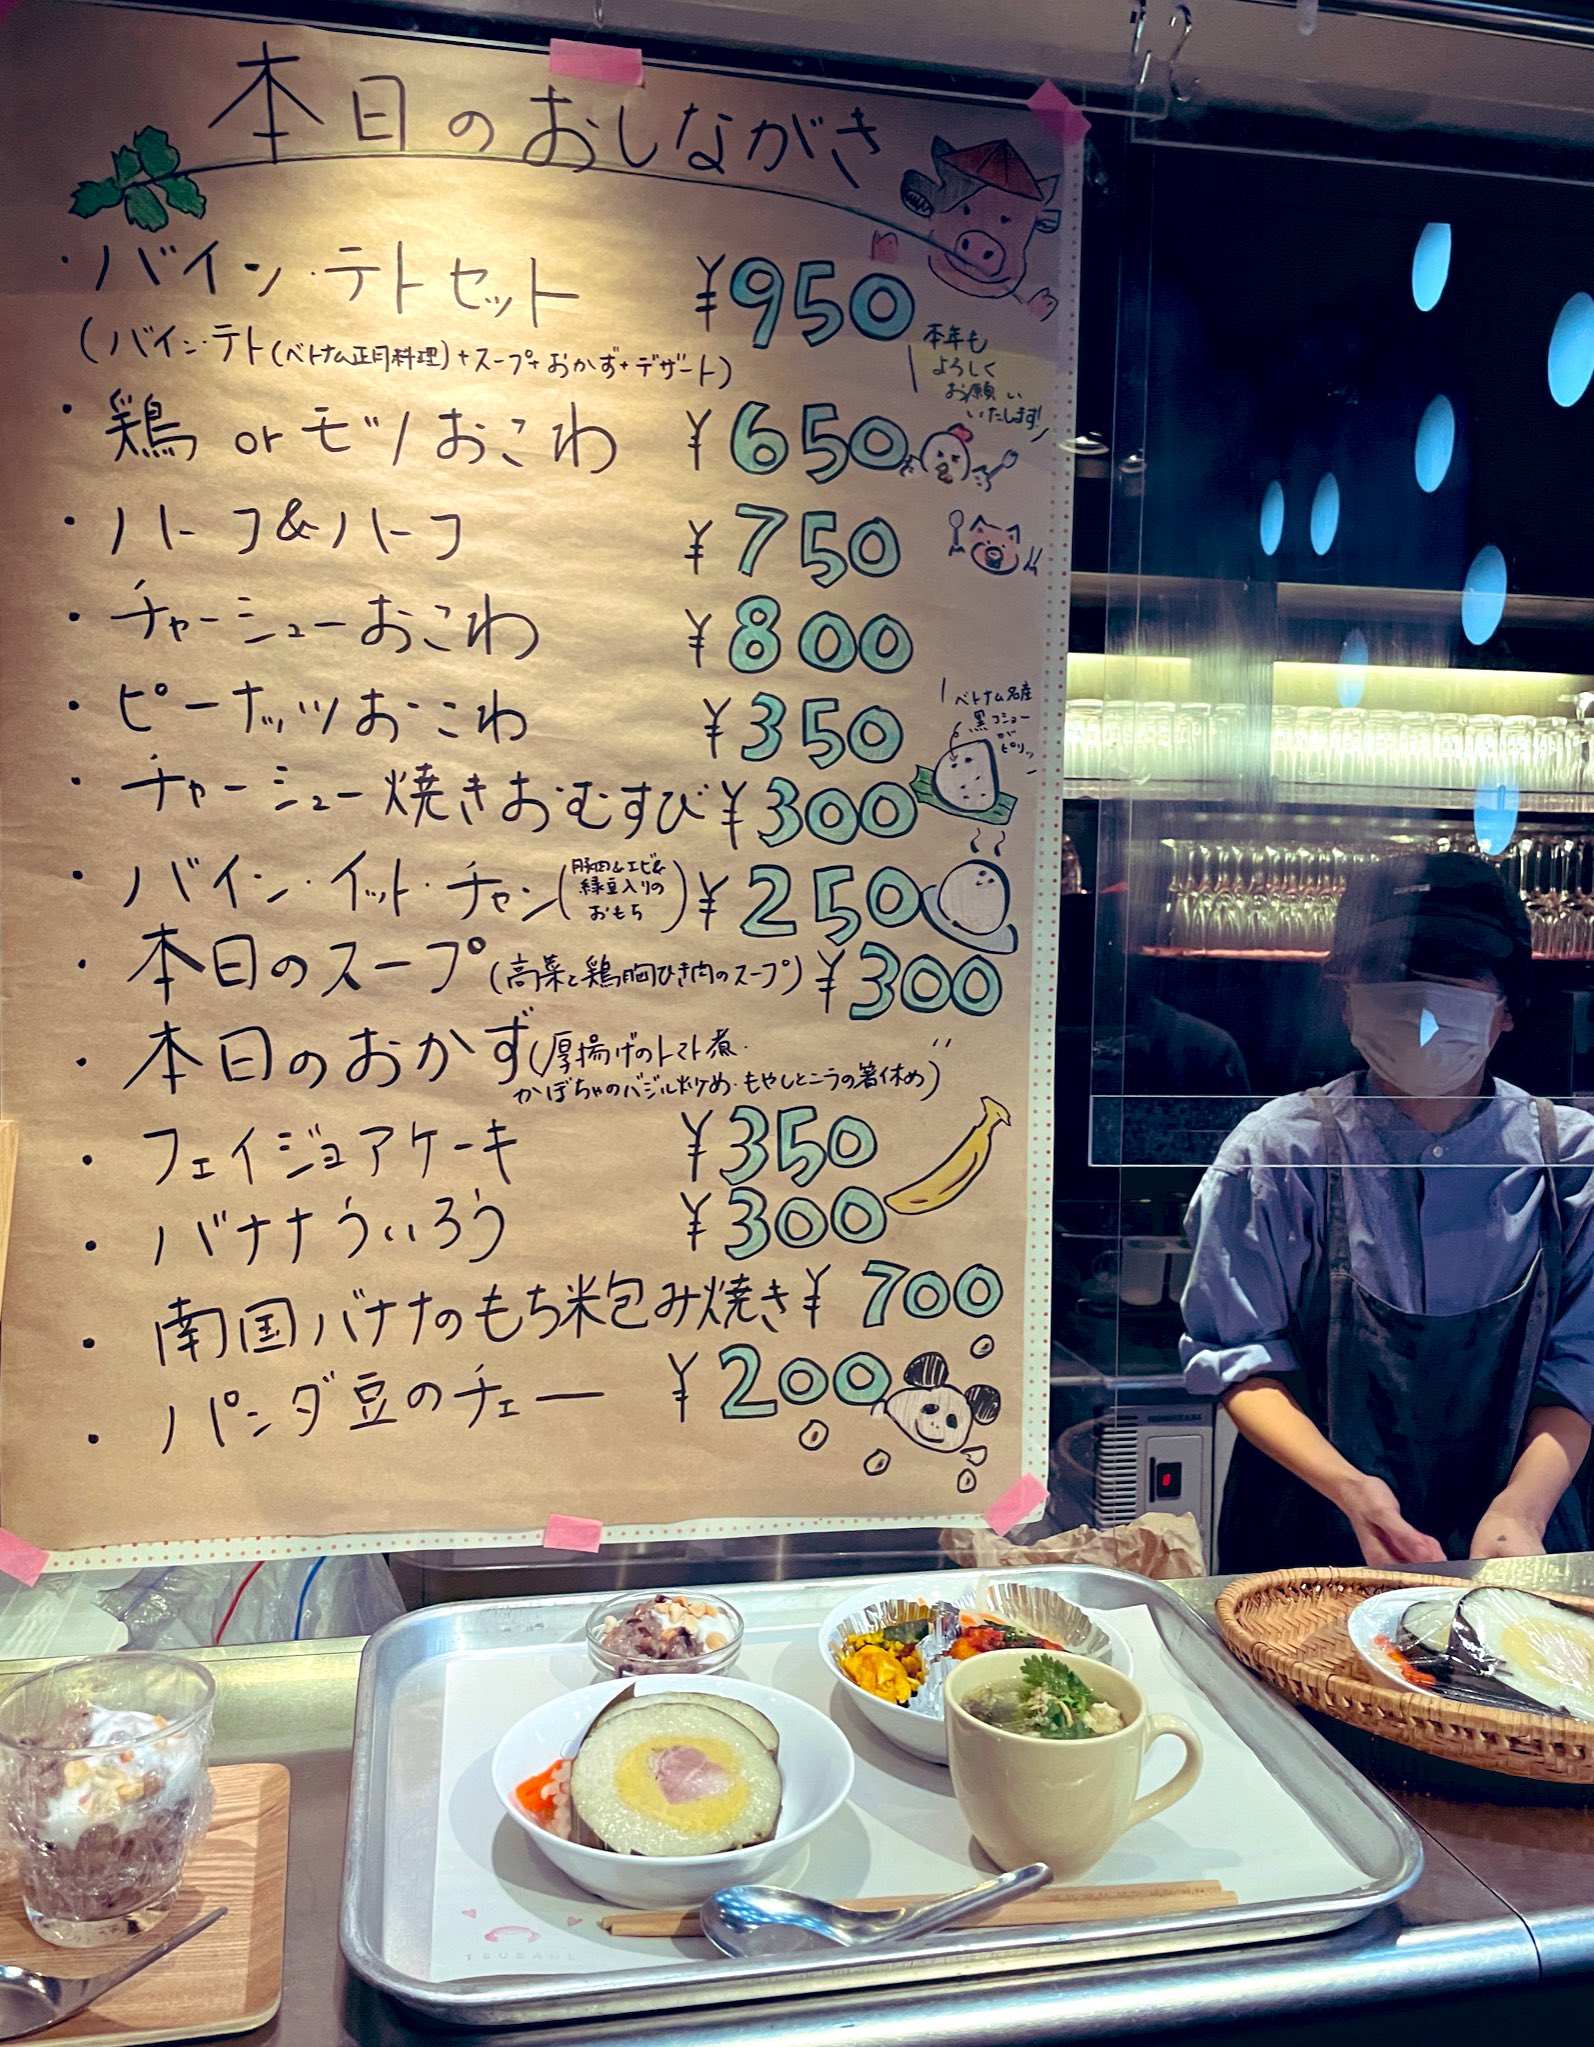 本日のおしながき
・バイン・テトセット ¥950
(バイン・テト(ベトナム正月料理)+スープ+おかず+デザート)
本年も
よろしく
お願い
いたします!
・鶏 or モツおこわ ¥650
・ハーフ&ハーフ ¥750
・チャーシューおこわ ¥800
・ピーナッツおこわ ¥350
ベトナム名産
黒コショー
が
ピリッ
・チャーシュー焼きおむすび ¥300
・バイン・イット・チャン(豚肉&エビ&
緑豆入りの
おもち) ¥250
・本日のスープ(高菜と鶏胸ひき肉のスープ) ¥300
・本日のおかず(厚揚げのトマト煮・
かぼちゃのバジル炒め・もやしとニラの箸休め)
・フェイジョアケーキ ¥350
・バナナういろう ¥300
・南国バナナのもち米包み焼き ¥700
・パンダ豆のチェー ¥200
TSUBAME